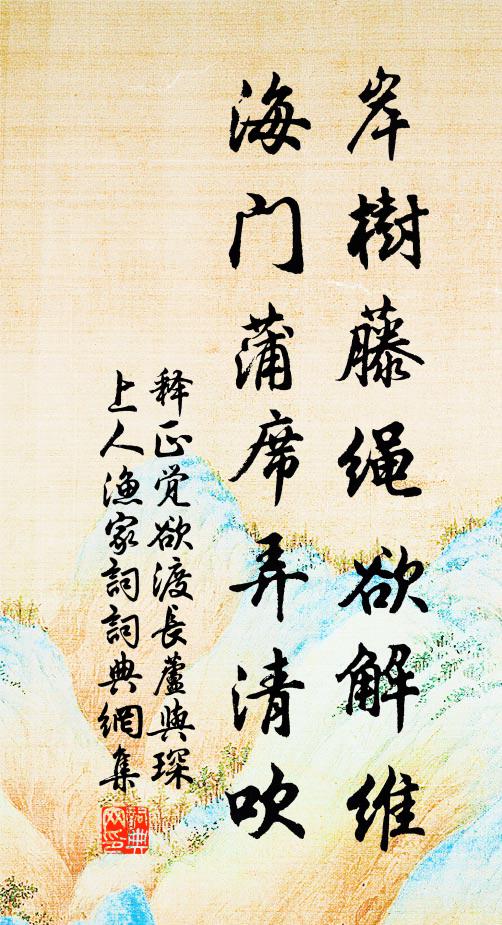 岸樹藤繩欲解維
海门蒲席弄清吹
释正觉欲渡長蘆與琛
上人漁家詞詞典網集
詞典
网印